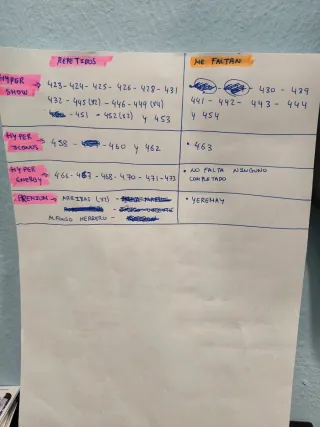 REPETIDOS
ME FALTAN
HYPER SHOW
423-424-425-426-428-431
432-445(x2)-446-449(x4)
-451-452(x2) y 453
- 430-439
441-442-443-444
y 454
HYPER ICONS
458- -460 y 462
• 463
HYPER ENERGY
466-467-468-470-471-473
• NO FALTA NINGUNO
COMPLETADO
PREMIUM
ARRIBAS (x2) -
ALFONSO HERRERO -
• YEREMAY